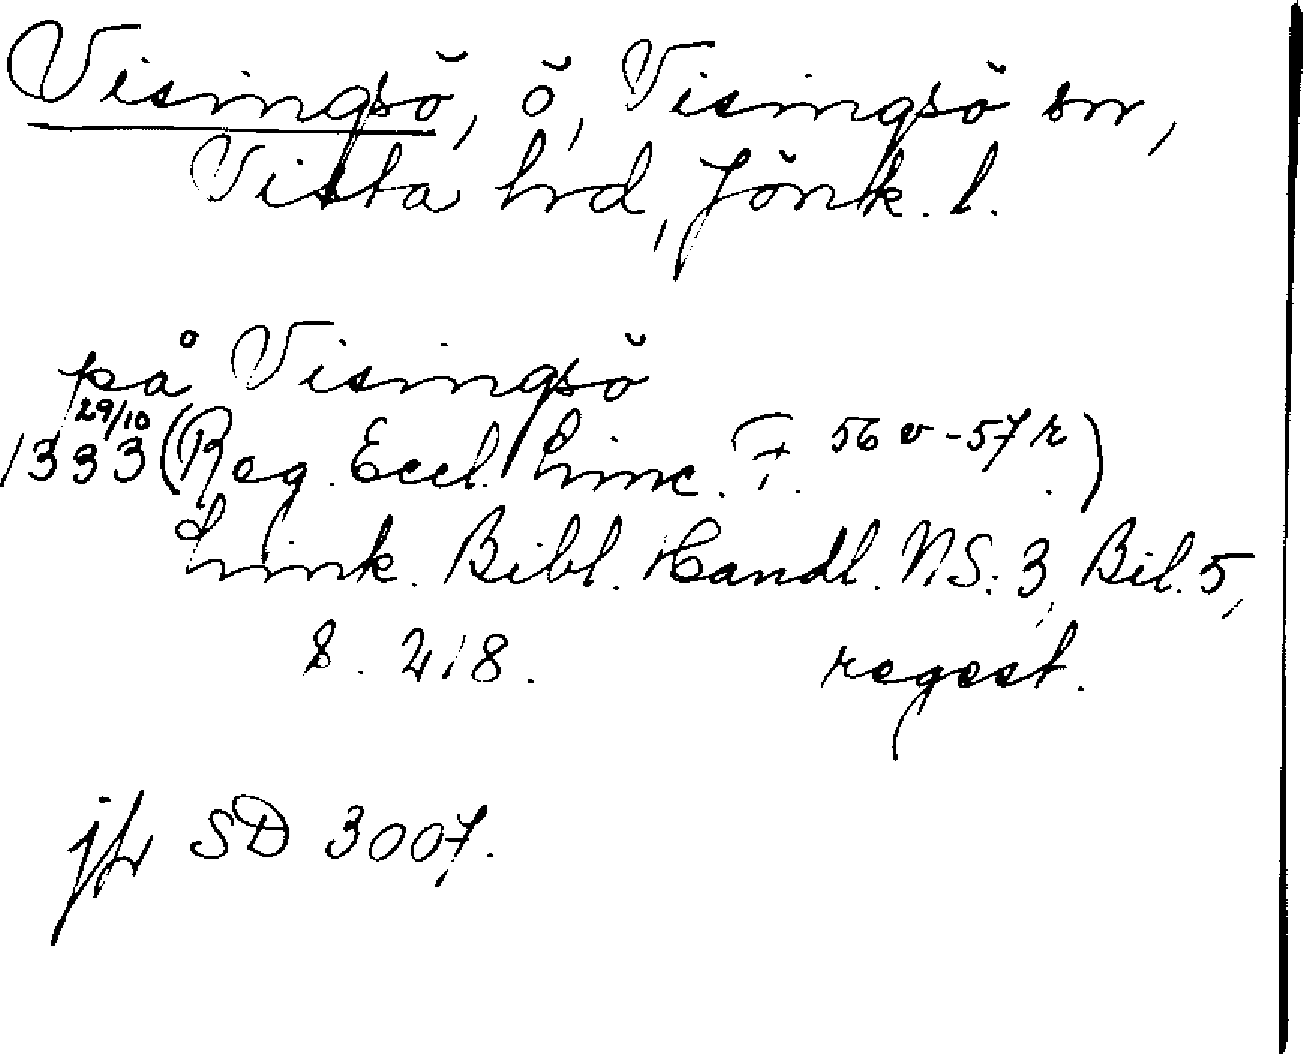 Visingsö, ö, Visingsö sn,
Vista hrd, Jönk. l.
på Visingsö
29/10
1333 (Reg. Eccl. Linc. F. 56 v - 57 r.)
Link. Bibl. Handl. N.S. 3, Bil. 5,
s. 218. regest.
jfr SD 3007.